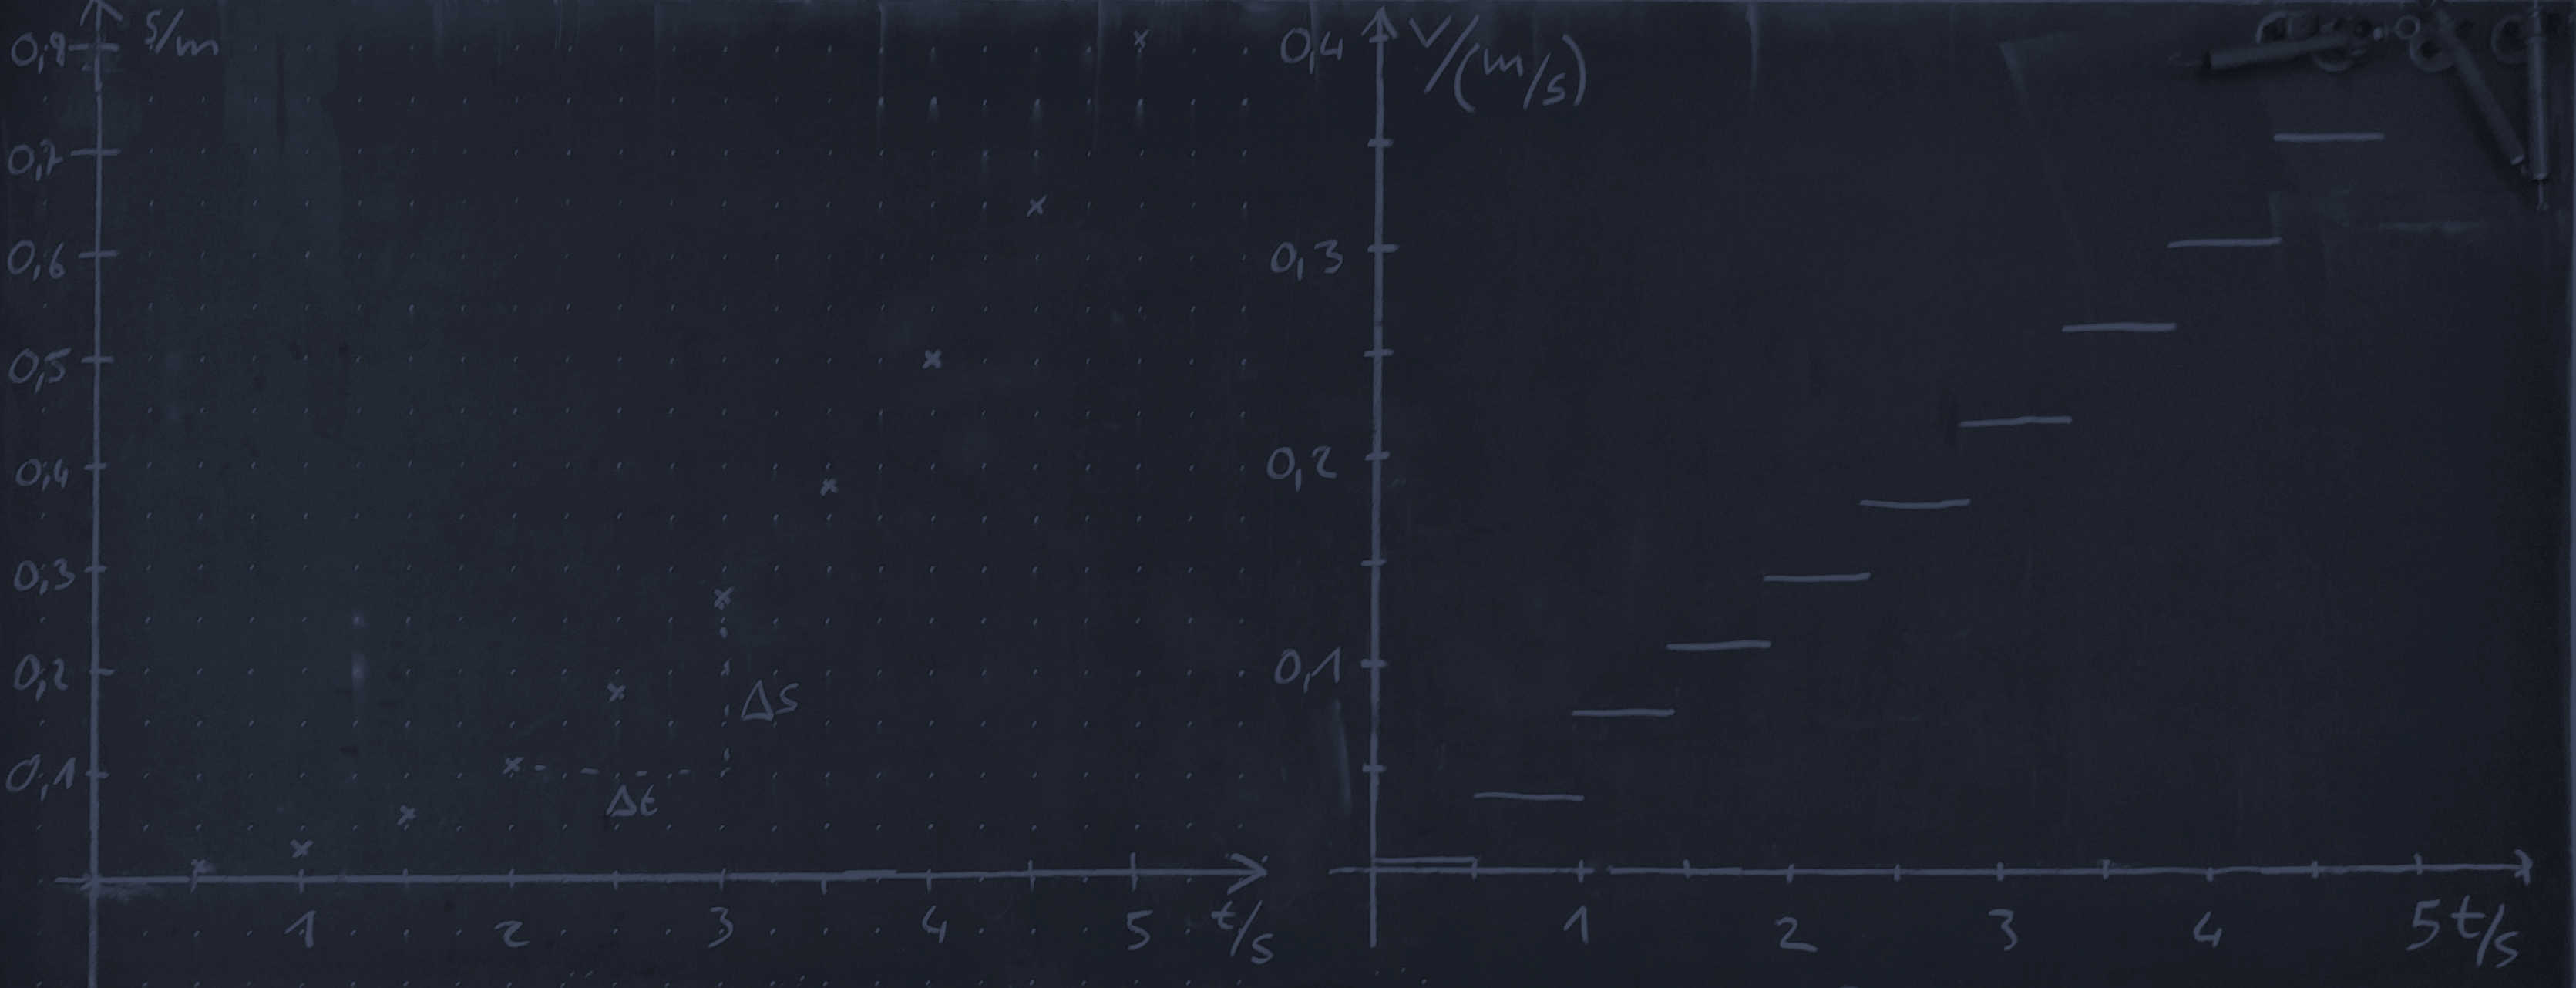 s/m
0,8
0,7
0,6
0,5
0,4
0,3
0,2
0,1
Δs
Δt
1 2 3 4 5 t/s
v/(m/s)
0,4
0,3
0,2
0,1
1 2 3 4 5 t/s